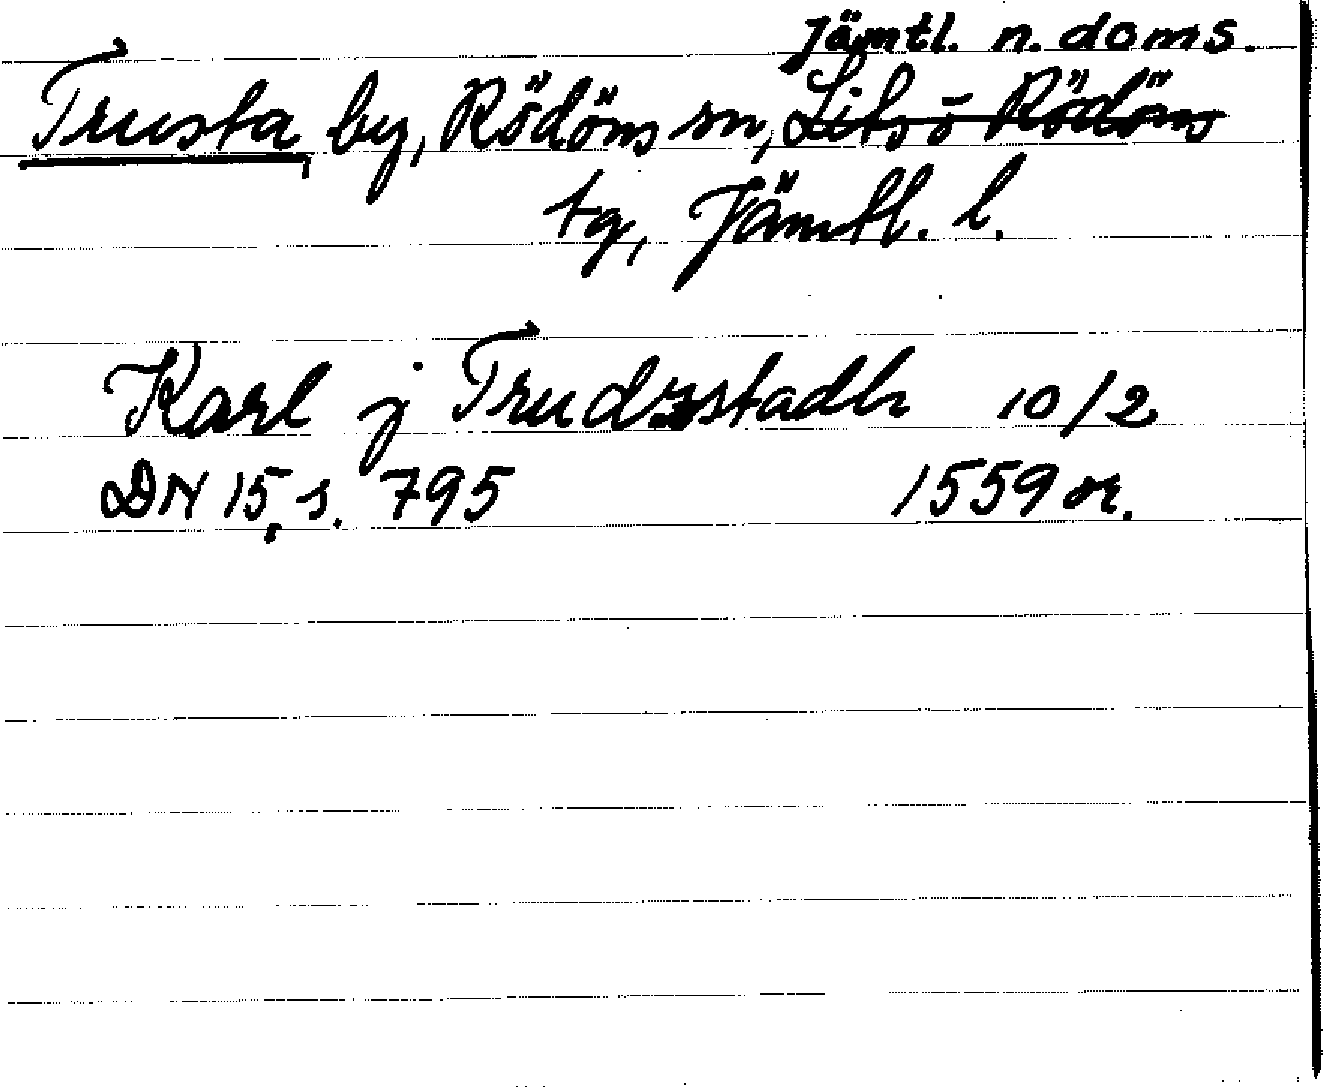 Jämtl. n. doms.
Trusta, by, Rödöns sn, Lits o Rödöns
tg, Jämtl. l.
Karl j Trudzstadh 10/2
DN 15, s. 795 1559 or.